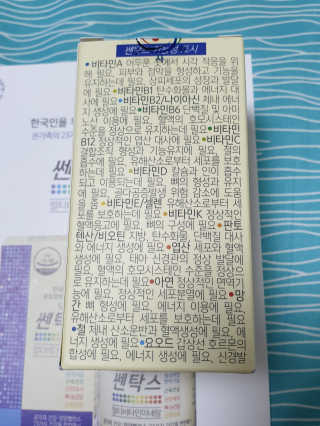 한국인을
쎈탁스
• 비타민A 어두운 곳에서 시각 적응을 위
해 필요, 피부와 점막을 형성하고 기능을
유지하는데 필요, 상피세포의 성장과 발달
에 필요 • 비타민B1 탄수화물과 에너지 대
사에 필요 • 비타민B2/나이아신 체내 에너
지 생성에 필요 • 비타민B6 단백질 및 아미
노산 이용에 필요, 혈액의 호모시스테인
수준을 정상으로 유지하는데 필요 • 비타민
B12 정상적인 엽산 대사에 필요 • 비타민C
결합조직 형성과 기능유지에 필요, 철의
흡수에 필요, 유해산소로부터 세포를 보호
하는데 필요 • 비타민D 칼슘과 인이 흡수
되고 이용되는데 필요, 뼈의 형성과 유지
에 필요, 골다공증발생 위험 감소에 도움
을 줌 • 비타민E/셀렌 유해산소로부터 세
포를 보호하는데 필요 • 비타민K 정상적인
혈액응고에 필요, 뼈의 구성에 필요 • 판토
텐산/비오틴 지방, 탄수화물, 단백질 대사
와 에너지 생성에 필요 • 엽산 세포와 혈액
생성에 필요, 태아 신경관의 정상 발달에
필요, 혈액의 호모시스테인 수준을 정상으
로 유지하는데 필요 • 아연 정상적인 면역기
능에 필요, 정상적인 세포분열에 필요 • 망
간 뼈 형성에 필요, 에너지 이용에 필요,
유해산소로부터 세포를 보호하는데 필요
• 철 체내 산소운반과 혈액생성에 필요, 에
너지 생성에 필요 • 요오드 갑상선 호르몬의
합성에 필요, 에너지 생성에 필요, 신경발
쎈탁스
쎈탁스